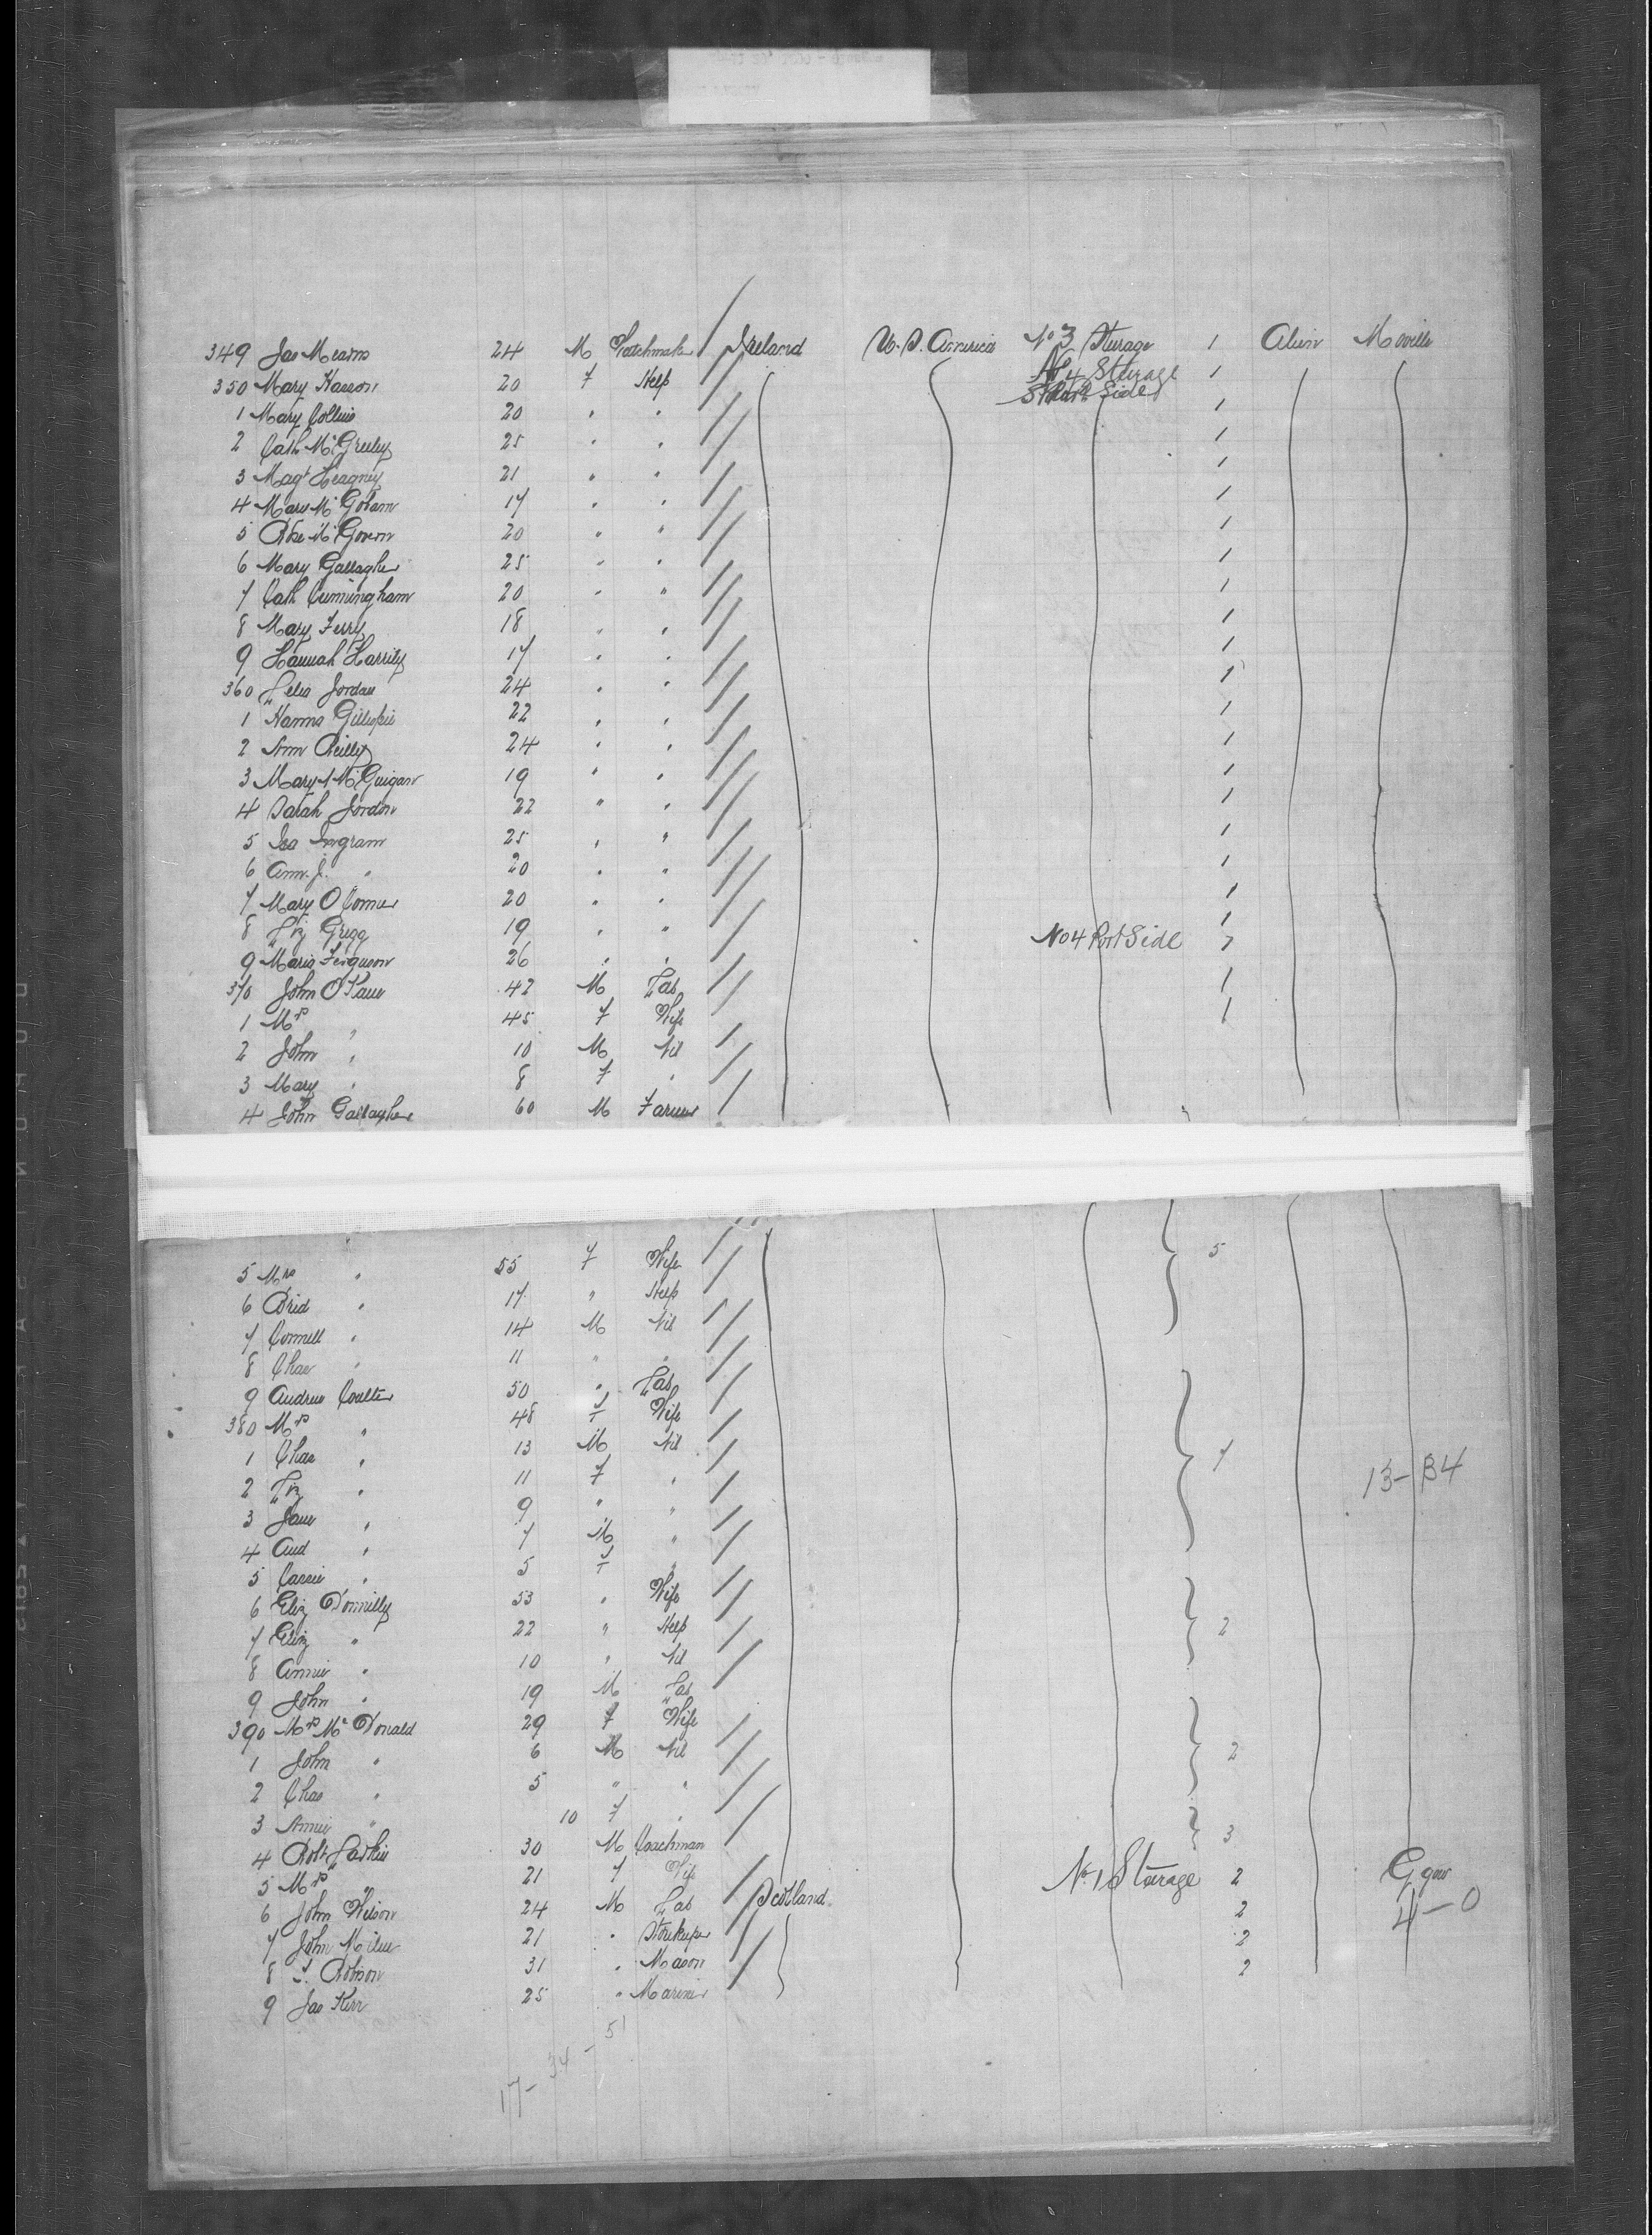 349 Jas Mearns 24 M Watchmaker Ireland U. S. America No 3 Sturage 1 Alien Moville
350 Mary Hasson 20 F Help No 4 Sturage 1
Side
1 Mary Collins 20 " " 1
2 Cath McGreeley 25 " " 1
3 Magt Heagney 21 " " 1
4 Mary McGovarn 17 " " 1
5 Rose McGovern 20 " " 1
6 Mary Gallagher 25 " " 1
7 Cath Cunningham 20 " " 1
8 Mary Ferry 18 " " 1
9 Hannah Harrity 17 " " 1
360 Jordan 24 " " 1
1 Hanna Gillespie 22 " " 1
2 Ann Reilly 24 " " 1
3 Mary A McGuigan 19 " " 1
4 Sarah Jordon 22 " " 1
5 Isa Ingram 25 " " 1
6 Ann. J. " 20 " " 1
7 Mary O Connor 20 " " 1
8 Liz Gregg 19 " " 1
9 Maria Ferguson 26 " " No 4 Port Side 1
370 John O'Kane 42 M Lab 1
1 Mrs " 45 F Wife 1
2 John " 10 M Nil
3 Mary " 8 F "
4 John Gallagher 60 M Farmer
5 Mrs " 55 F Wife 5
6 Brid " 17 " Help
7 Connell " 14 M Nil
8 Chas " 11 " "
9 Andrew Coulter 50 " Lab
380 Mrs " 48 F Wife
1 Chas " 13 M Nil 7 13-34
2 Liz " 11 F "
3 Jane " 9 " "
4 And " 7 M "
5 Cassie " 5 F "
6 Eliz Donnilly 53 " Wife
7 Eliz " 22 " Help 2
8 Annie " 10 " Nil
9 John " 19 M Lab
390 Mrs McDonald 29 F Wife
1 John " 6 M Nil 2
2 Chas " 5 " "
3 Annie " 10 F "
4 Robt Larkin 30 M Coachman 3
5 Mrs " 21 F Wife No 1 Sturage 2 Ggow
6 John Wilson 24 M Lab Scotland 2 4-0
7 John Milne 21 " Storekeeper 2
8 J. Robson 31 " Mason 2
9 Jas Kerr 25 " Mariner
17-34-51